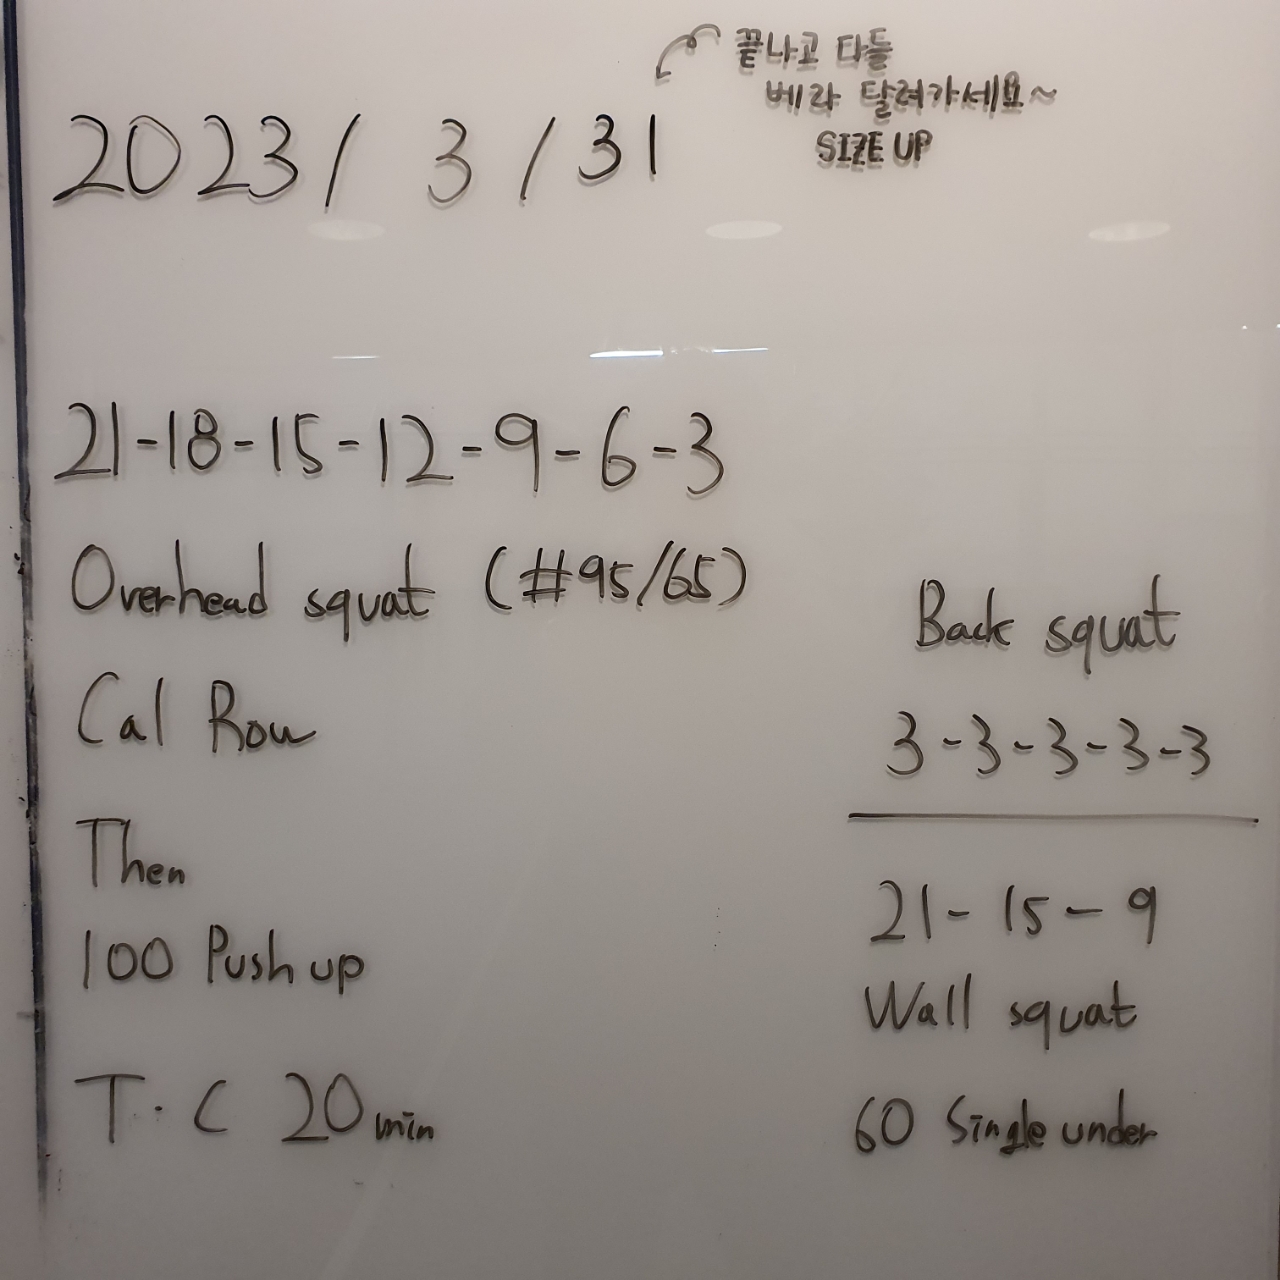 끝나고 다들
베라 달려가세요~
SIZE UP
2023/ 3 / 31
21-18-15-12-9-6-3
Overhead squat (#95/65)
Cal Row
Then
100 Push up
T.C 20min
Back squat
3-3-3-3-3
21-15-9
Wall squat
60 Single under